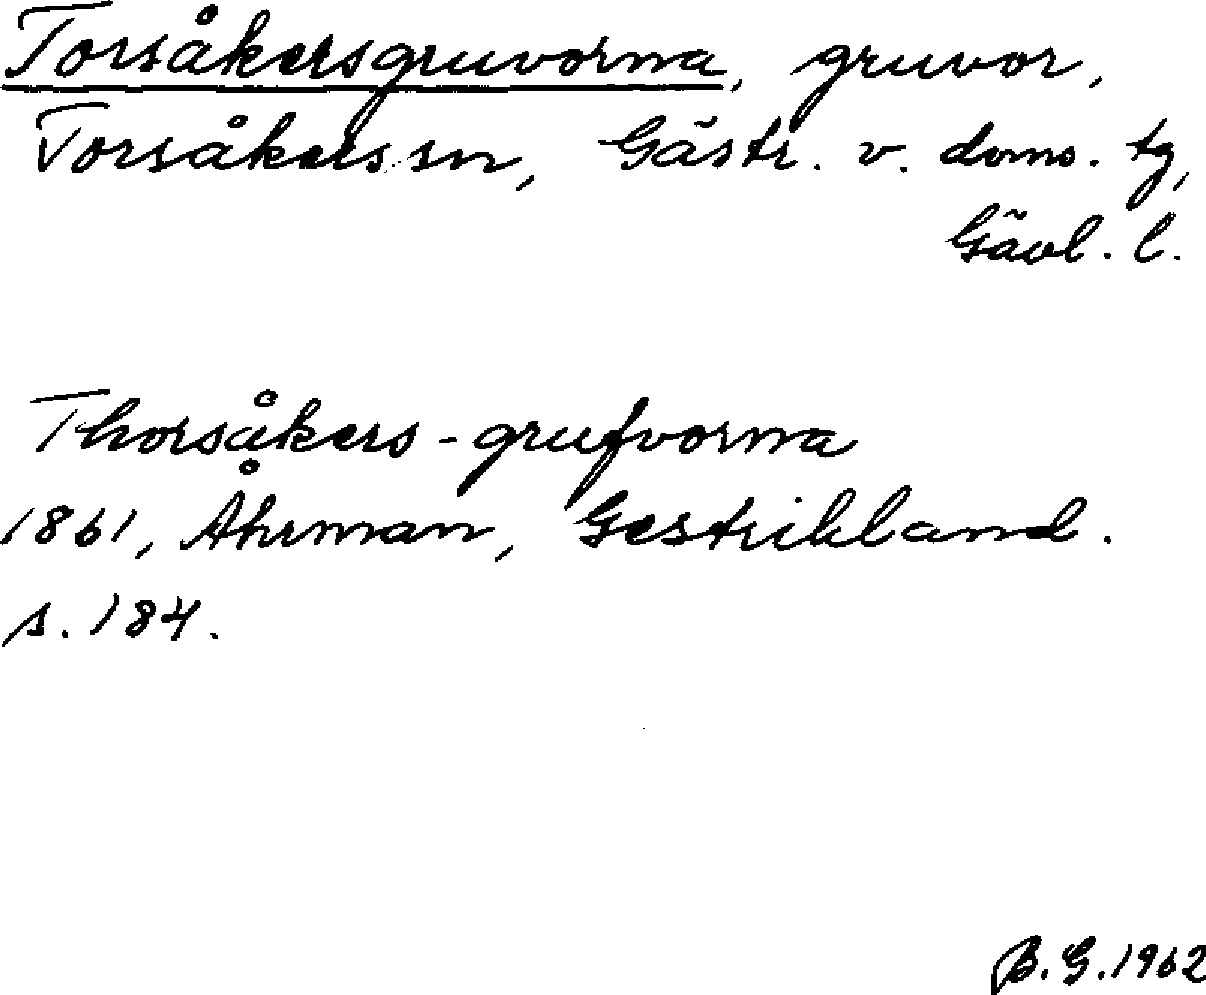 Torsåkersgruvorna, gruvor,
Torsåkers sn, Gästr. v. doms. tg,
Gävl. l.
Thorsåkers-grufvorna
1861, Åhrman, Gestrikland.
s. 184.
B.G. 1962